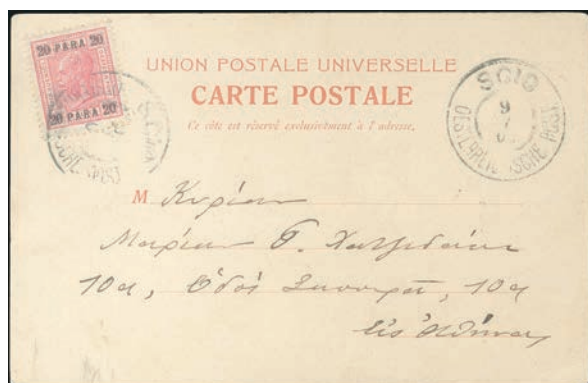 20 PARA 20
20 PARA 20
UNION POSTALE UNIVERSELLE
CARTE POSTALE
Ce côte est réservé exclusivement à l'adresse.
SCIO
9
OESTERREICHISCHE POST
M Κυρίαν
Μαρίαν Γ. Χατζιδάκι
10α, Ὁδός 10α
εἰς Ἀθήνας